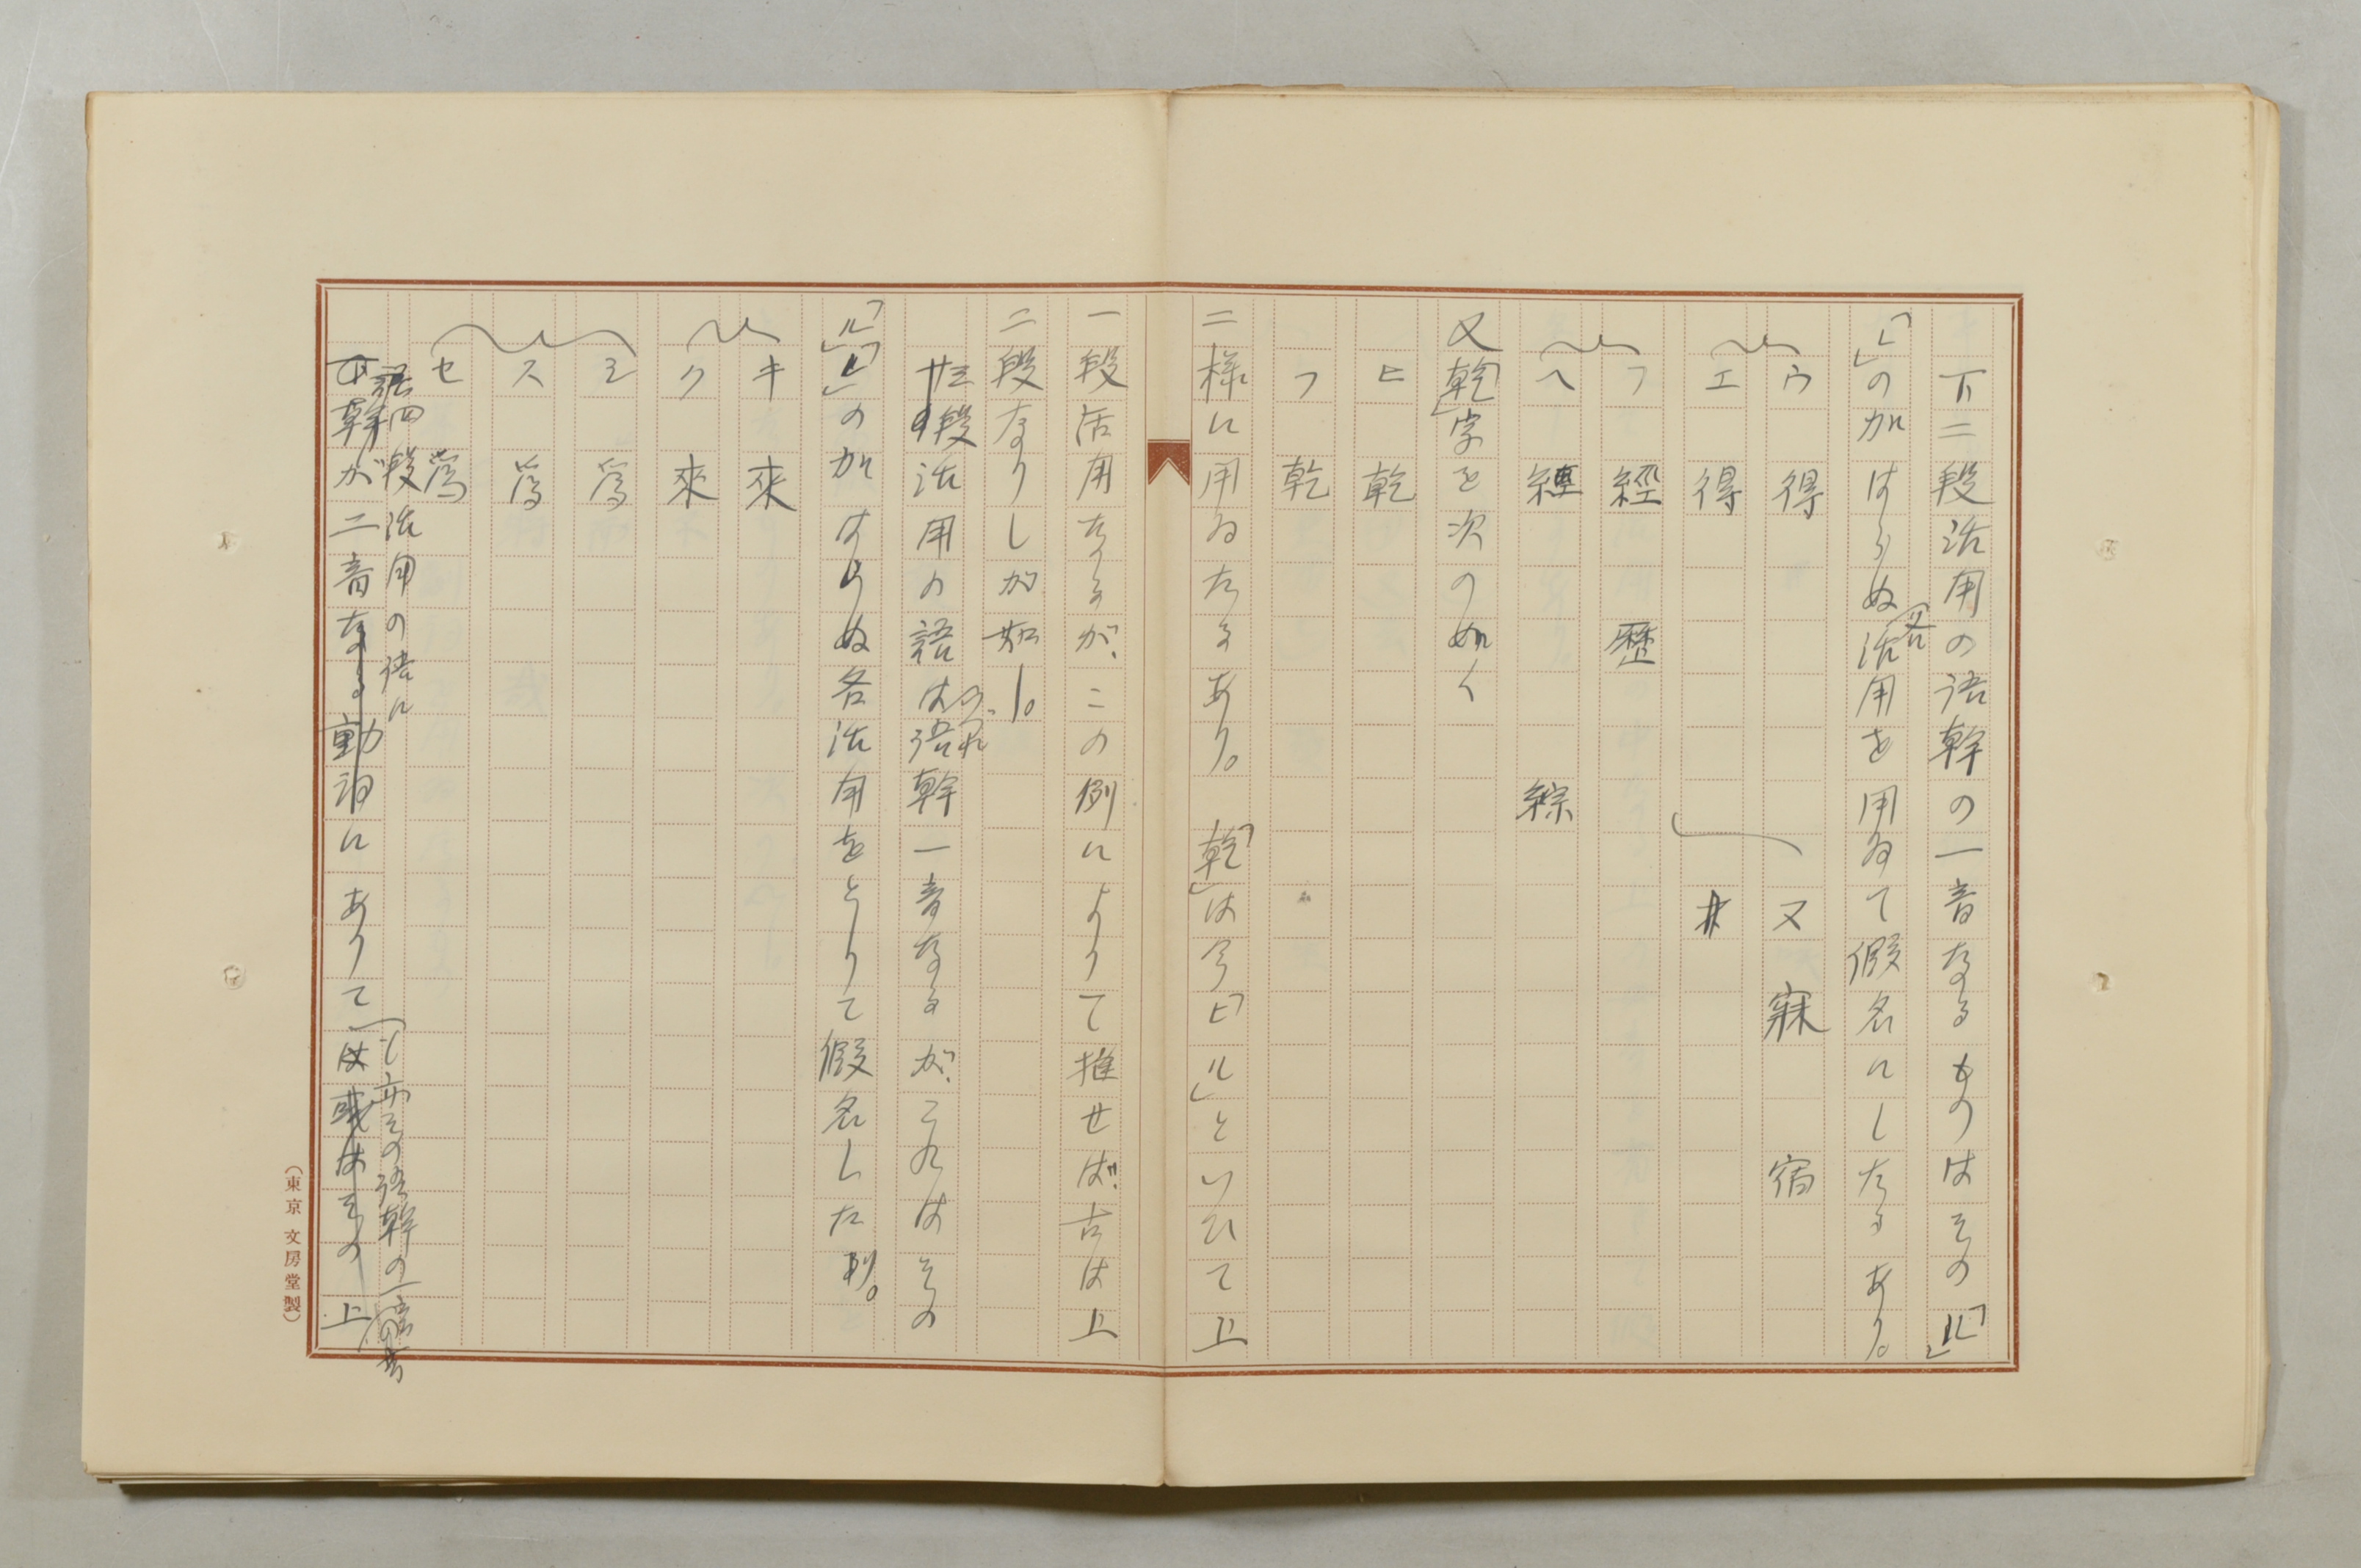 下二段活用の語幹の一音なるものはその「ル」
「レ」の加はらぬ各活用を用ゐて假名にしたるあり。
ウ 得 又 寐 宿
エ 得
フ 經 歷
ヘ 經 綜
又「乾」字を次の如く
ヒ 乾
フ 乾
二樣に用ゐたるあり。「乾」は今「ヒル」といひて上
一段活用なるが、この例によりて推せば、古は上
二段なりしが如し。
段活用の語は語幹一音なるが、これはその
「ル」「レ」の加はらぬ各活用をとりて假名した り。
キ 來
ク 來
シ 爲
ス 爲
セ 爲
四段活用の語に その語幹の一音
幹が二音なる動詞にありては或はその上
(東京 文房堂製)